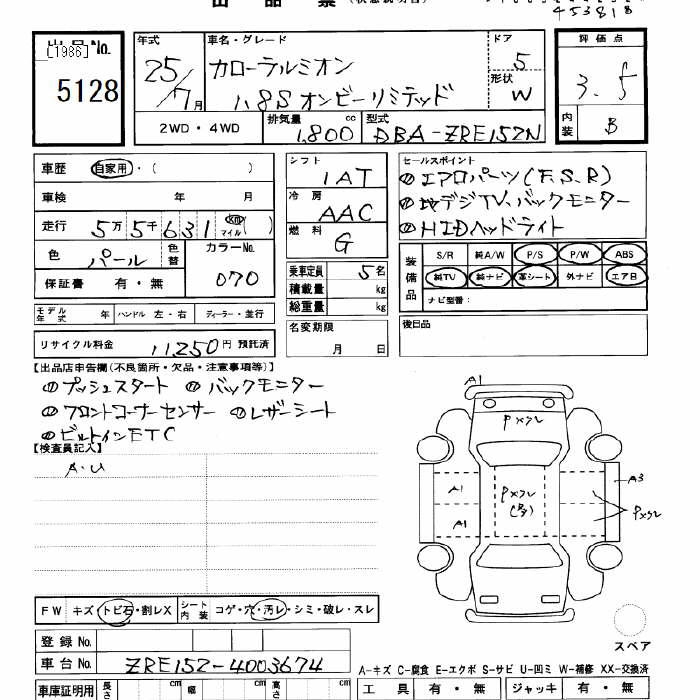 出品票
4 5 3 8 1 8
出品No.
[1986]
5128
年式
25/7月
車名・グレード
カローラルミオン
1.8S オンビーリミテッド
ドア
5
形状
W
評価点
3.5
内装
B
2WD・4WD
排気量
1,800 cc
型式
DBA-ZRE152N
車歴 自家用・( )
車検 年 月
走行 5万5千631 km マイル( )
色 パール 色替 カラーNo. 070
保証書 有・無
シフト 1AT
冷房 AAC
燃料 G
乗車定員 5名
積載量 kg
総重量 kg
名変期限
月 日
セールスポイント
エアロパーツ(F.S.R)
地デジTV、バックモニター
HIDヘッドライト
装備品
S/R 純A/W P/S P/W ABS
純TV 純ナビ 革シート 外ナビ エアB
ナビ型番:
後日品
モデル年式 年 ハンドル 左・右 ディーラー・並行
リサイクル料金 11,250円 預託済
【出品店申告欄(不良箇所・欠品・注意事項等)】
プッシュスタート バックモニター
フロントコーナーセンサー レザーシート
ビルトインETC
【検査員記入】
A・U
A1
Pメクレ
A1
Pメクレ
A3
A1
Pメクレ
FW キズ・トビ石・割レX シート内装 コゲ・穴・汚レ・シミ・破レ・スレ
登録No.
車台No. ZRE152-4003674
スペア
A-キズ C-腐食 E-エクボ S-サビ U-凹ミ W-補修 XX-交換済
車庫証明用 長さ cm 幅 cm 高さ cm
工具 有・無 ジャッキ 有・無